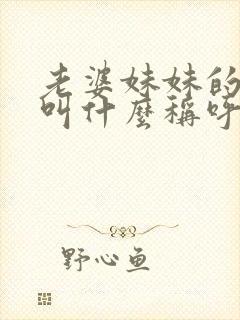 老婆妹妹的
叫什麼稱呼
野心鱼